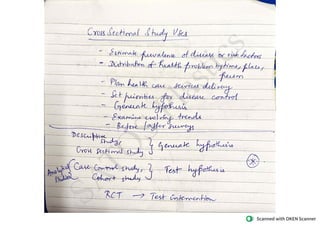 Cross Sectional Study Uses
- Estimate prevalence of disease or risk factors
- Distribution of health problem by time, place, person
- Plan health care services delivery
- Set priorities for disease control
- Generate hypothesis
- Examine evolving trends
- Before / after surveys
Descriptive study,
Cross sectional study } Generate hypothesis
Analytical studies { Case Control study,
Cohort study } Test hypothesis
RCT → Test intervention
Scanned with OKEN Scanner